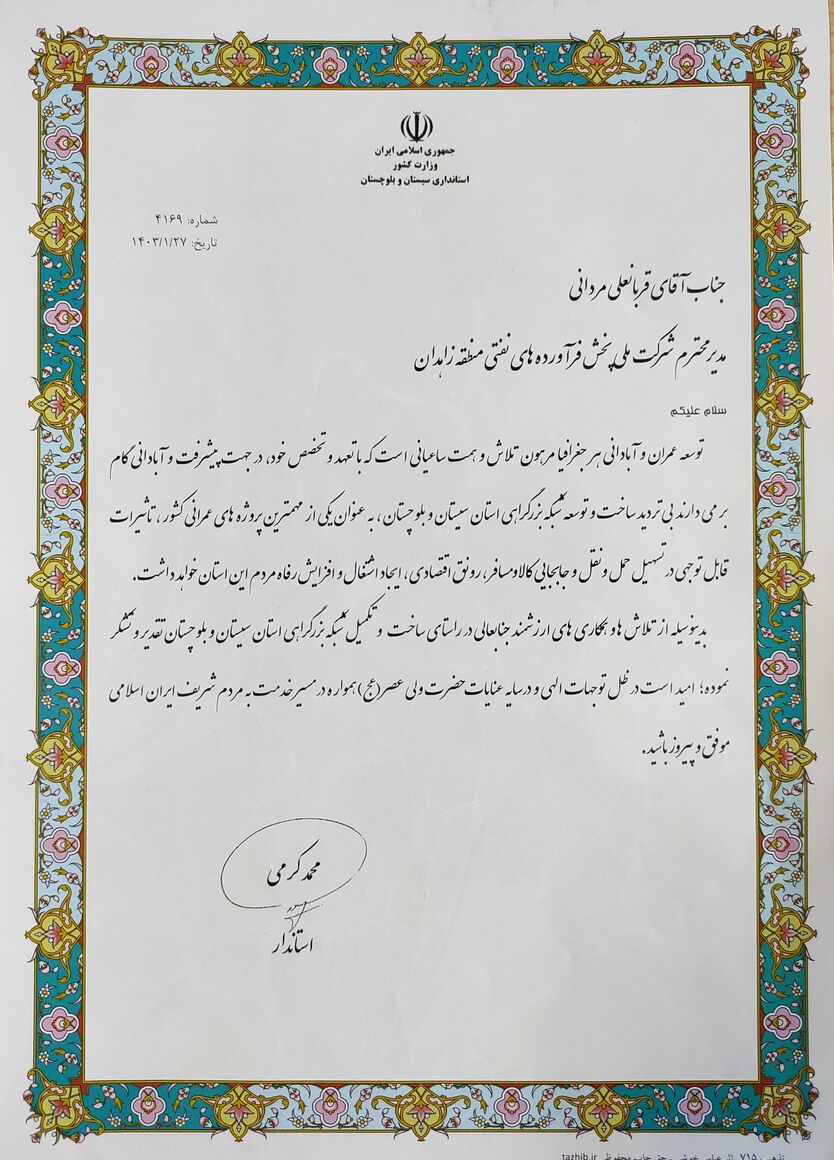 جمهوری اسلامی ایران
وزارت کشور
استانداری سیستان و بلوچستان
شماره: ۴۱۶۹
تاریخ: ۱۴۰۳/۱/۲۷
جناب آقای قربانعلی مردانی
مدیر محترم شرکت ملی پخش فرآورده های نفتی منطقه زاهدان
سلام علیکم
توسعه عمران و آبادانی هر جغرافیا مرهون تلاش و همت ساعیانی است که با تعهد و تخصص خود، در جهت پیشرفت و آبادانی گام
بر می دارند بی تردید ساخت و توسعه شبکه بزرگراهی استان سیستان و بلوچستان، به عنوان یکی از مهمترین پروژه های عمرانی کشور، تاثیرات
قابل توجهی در تسهیل حمل و نقل و جابجایی کالا و مسافر، رونق اقتصادی، ایجاد اشتغال و افزایش رفاه مردم این استان خواهد داشت.
بدینوسیله از تلاش ها و همکاری های ارزشمند جنابعالی در راستای ساخت و تکمیل شبکه بزرگراهی استان سیستان و بلوچستان تقدیر و تشکر
نموده؛ امید است در ظل توجهات الهی و در سایه عنایات حضرت ولی عصر(عج) همواره در مسیر خدمت به مردم شریف ایران اسلامی
موفق و پیروز باشید.
محمد کرمی
استاندار
tazhib.ir